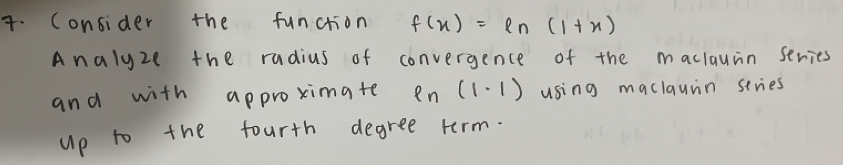 7. Consider the function f(x) = ln (1+x)
Analyze the radius of convergence of the maclaurin series
and with approximate ln (1.1) using maclaurin series
up to the fourth degree term.